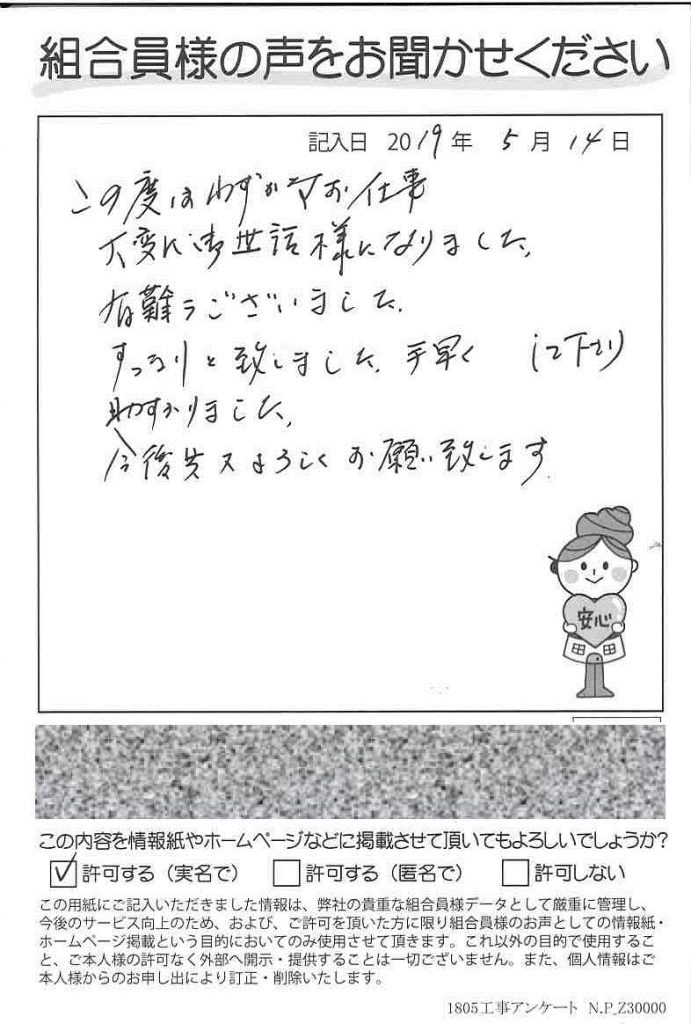 組合員様の声をお聞かせください
記入日 2019年 5月 14日
この度はわずかなお仕事
大変に御世話様になりました。
有難うございました。
すっきりと致しました。手早く して下さり
助すかりました。
今後共又よろしくお願い致します
安心
この内容を情報紙やホームページなどに掲載させて頂いてもよろしいでしょうか?
☑許可する(実名で) □許可する(匿名で) □許可しない
この用紙にご記入いただきました情報は、弊社の貴重な組合員様データとして厳重に管理し、
今後のサービス向上のため、および、ご許可を頂いた方に限り組合員様のお声としての情報紙・
ホームページ掲載という目的においてのみ使用させて頂きます。これ以外の目的で使用するこ
と、ご本人様の許可なく外部へ開示・提供することは一切ございません。また、個人情報はご
本人様からのお申し出により訂正・削除いたします。
1805工事アンケート N.P_Z30000